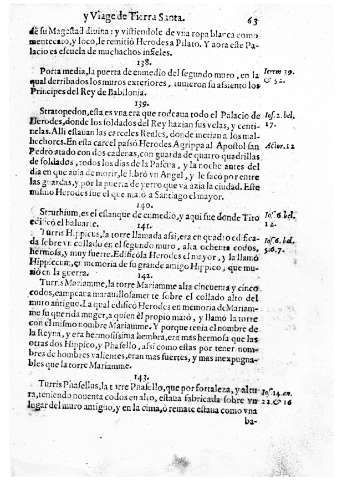 y Viage de Tierra Santa. 63
de su Magestad diuina: y vistiendole de vna ropa blanca como
mentecato, y loco, le remitió Herodes a Pilato. Y aora este Pa-
lacio es escuela de muchachos infieles.
138.
Porta media, la puerta de enmedio del segundo muro, en la
qual derribados los muros exteriores, tuuieron su assiento los
Principes del Rey de Babilonia.
Ierem 39.
& 52.
139.
Stratopedon, esta es vna era que rodeaua todo el Palacio de
Herodes, donde los soldados del Rey hazian sus velas, y centi-
nelas. Alli estauan las carceles Reales, donde metian a los mal-
hechores. En esta carcel puso Herodes Agrippa al Apostol san
Pedro atado con dos cadenas, con guarda de quatro quadrillas
de soldados, todos los dias de la Pascua, y la noche antes del
dia en que auia de morir, le libró vn Angel, y le sacó por entre
las guardas, y por la puerta de yerro que va azia la ciudad. Este
mismo Herodes fue el que mató a Santiago el mayor.
Ios. 2. bel.
17.
Actor. 12
140.
Struthium, es el estanque de enmedio, y aqui fue donde Tito
edificó el baluarte.
Ios. 6. bel.
12.
141.
Turris Hippicus, la torre llamada assi, era en quadro edifica-
da sobre vn collado en el segundo muro, alta ochenta codos,
hermosa, y muy fuerte. Edificola Herodes el mayor, y la llamó
Hippicum, en memoria de su grande amigo Hippico, que mu-
rió en la guerra.
Ios. 6. bel.
5.6.7.
142.
Turris Mariamme, la torre Mariamme alta cincuenta y cinco
codos, campeaua marauillosamente sobre el collado alto del
muro antiguo. La qual edificó Herodes en memoria de Mariam-
me su querida muger, a quien él propio mató, y llamó la torre
con el mismo nombre Mariamme. Y porque tenia el nombre de
la Reyna, y era hermosissima hembra, era mas hermosa que las
otras dos Hippico, y Phasello, assi como estas por tener nom-
bres de hombres valientes, eran mas fuertes, y mas inexpugna-
bles que la torre Mariamme.
143.
Turris Phasellus, la torre Phasello, que por fortaleza, y altu-
ra, teniendo nouenta codos en alto, estaua fabricada sobre vn
lugar del muro antiguo, y en la cima, ó remate estaua como vna
Ios. 14. an.
22. & 16
ba-